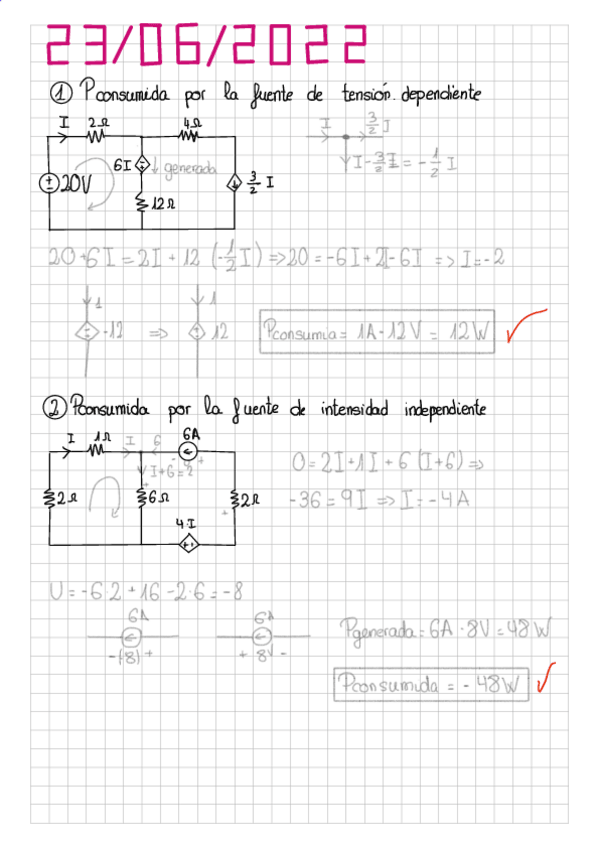 23/06/2022
① Pconsumida por la fuente de tensión dependiente
I 2Ω 4Ω
20V 6I ↓ generada 12Ω 3/2 I
I 3/2 I
I - 3/2 I = - 1/2 I
20+6I = 2I + 12 (-1/2 I) => 20 = -6I + 2I - 6I => I = -2
1 1
-12 => 12
Pconsumia = 1A · 12V = 12W ✓
② Pconsumida por la fuente de intensidad independiente
I 1Ω I 6 6A
I+6=2
2Ω 6Ω 2Ω
4I
0 = 2I + 1I + 6 (I+6) =>
-36 = 9I => I = -4A
U = -6·2 + 16 - 2·6 = -8
6A 6A
-(8)+ + 8V -
Pgenerada = 6A · 8V = 48W
Pconsumida = - 48W ✓